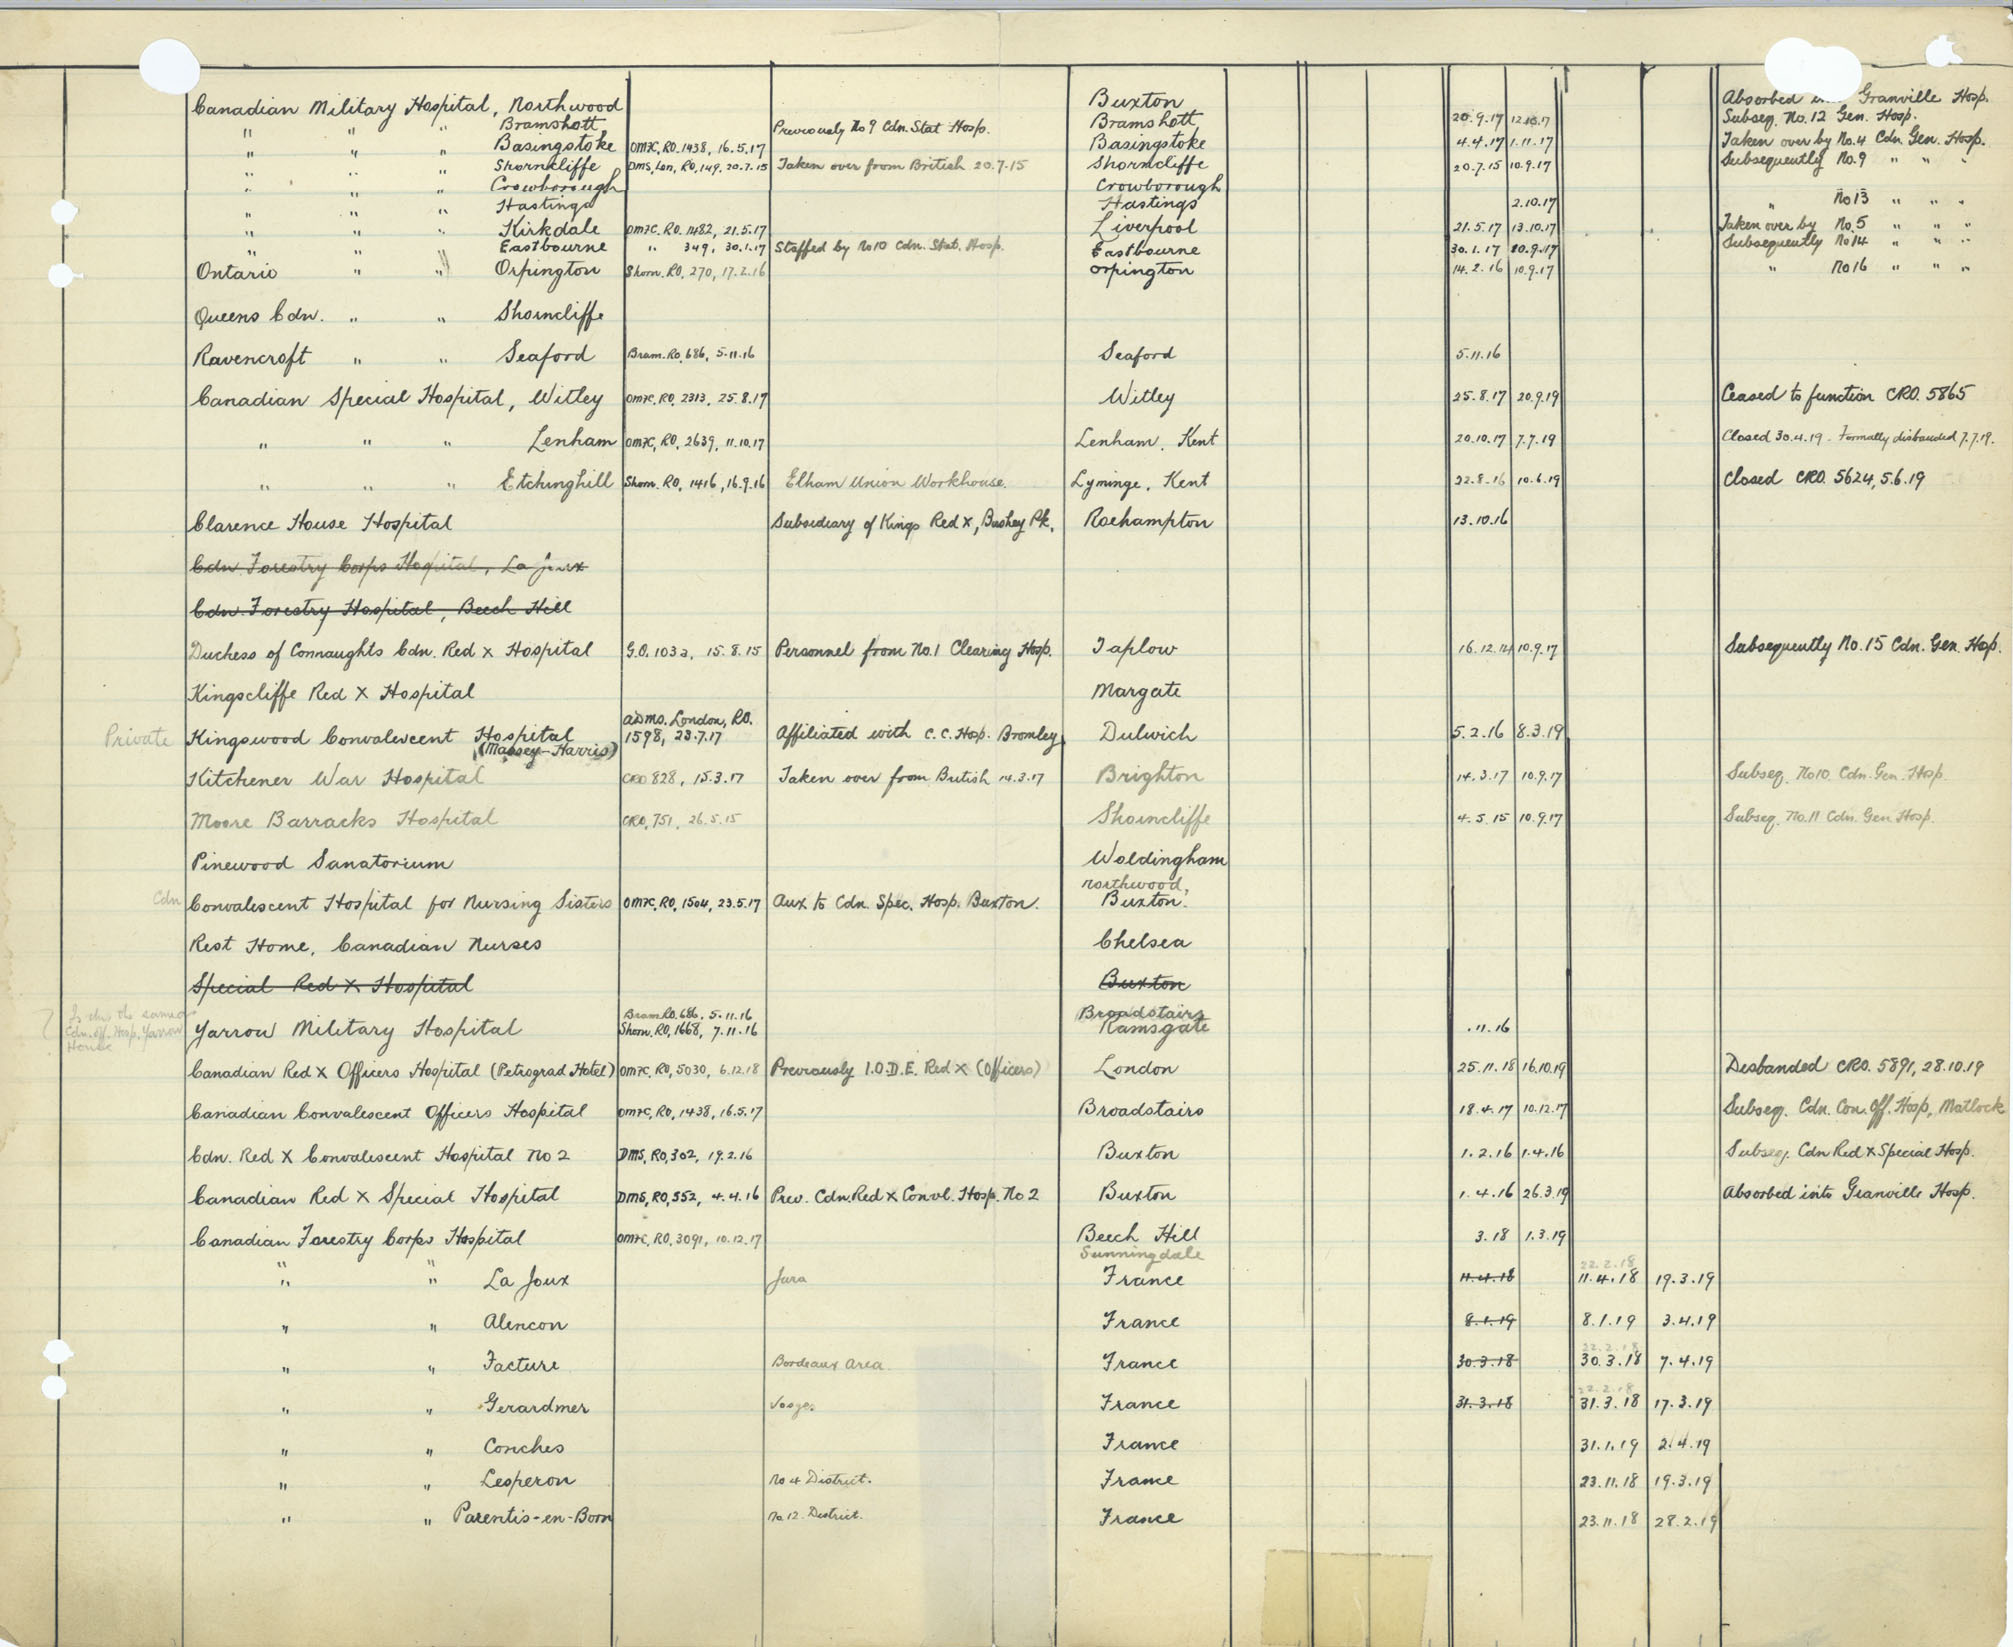 Canadian Military Hospital, Northwood Buxton Absorbed Granville Hosp.
" " " Bramshott Previously No 9 Cdn. Stat Hosp. Bramshott 20.9.17 Subseq. No. 12 Gen. Hosp.
" " " Basingstoke OMFC, RO. 1438, 16.5.17 Basingstoke 4.4.17 1.11.17 Taken over by No. 4 Cdn. Gen. Hosp.
" " " Shorncliffe DMS, Lon, RO, 149, 20.7.15 Taken over from British 20.7.15 Shorncliffe 20.7.15 10.9.17 Subsequently No. 9 " " "
" " " Crowborough Crowborough
" " " Hastings Hastings 2.10.17 " No 13 " " "
" " " Kirkdale OMFC. RO. 1482, 21.5.17 Liverpool 21.5.17 13.10.17 Taken over by No. 5 " " "
" " " Eastbourne " 349, 30.1.17 Staffed by No 10 Cdn. Stat. Hosp. Eastbourne 30.1.17 Subsequently No 14 " " "
Ontario " " Orpington Shorn. RO, 270, 17.2.16 Orpington 14.2.16 10.9.17 " No 16 " " "
Queens Cdn. " " Shorncliffe
Ravencroft " " Seaford Bram. RO, 686, 5.11.16 Seaford 5.11.16
Canadian Special Hospital, Witley OMFC, RO, 2313, 25.8.17 Witley 25.8.17 20.9.19 Ceased to function CRO. 5865
" " " Lenham OMFC, RO, 2639, 11.10.17 Lenham, Kent 20.10.17 7.7.19 Closed 30.4.19 - Formally disbanded 7.7.19.
" " " Etchinghill Shorn. RO, 1416, 16.9.16 Elham Union Workhouse. Lyminge, Kent 22.8.16 10.6.19 Closed CRO. 5624, 5.6.19
Clarence House Hospital Subsidiary of Kings Red X, Bushey Pk. Roehampton 13.10.16
Cdn Forestry Corps Hospital, La Joux
Cdn. Forestry Hospital, Beech Hill
Duchess of Connaughts Cdn. Red X Hospital G.O. 103a, 15.8.15 Personnel from No. 1 Clearing Hosp. Taplow 16.12.14 10.9.17 Subsequently No. 15 Cdn. Gen. Hosp.
Kingscliffe Red X Hospital Margate
ADMS. London, RO.
Private Kingswood Convalescent Hospital 1598, 23.7.17 Affiliated with C.C. Hosp. Bromley Dulwich 5.2.16 8.3.19
(Massey-Harris)
Kitchener War Hospital CRO 828, 15.3.17 Taken over from British 14.3.17 Brighton 14.3.17 10.9.17 Subseq. No 10 Cdn. Gen. Hosp.
Moore Barracks Hospital CRO, 751, 26.5.15 Shorncliffe 4.5.15 10.9.17 Subseq. No. 11 Cdn. Gen. Hosp.
Pinewood Sanatorium Woldingham
Northwood,
Cdn Convalescent Hospital for Nursing Sisters OMFC, RO, 1504, 23.5.17 Aux to Cdn. Spec. Hosp. Buxton. Buxton.
Rest Home, Canadian Nurses Chelsea
Special Red X Hospital Buxton
Bram RO. 686, 5.11.16 Broadstairs
Is this the same as
Cdn. Off. Hosp. Yarrow
House
Yarrow Military Hospital Shorn. RO, 1668, 7.11.16 Ramsgate .11.16
Canadian Red X Officers Hospital (Petrograd Hotel) OMFC, RO, 5030, 6.12.18 Previously I.O.D.E. Red X (Officers) London 25.11.18 16.10.19 Disbanded CRO. 5891, 28.10.19
Canadian Convalescent Officers Hospital OMFC, RO, 1438, 16.5.17 Broadstairs 18.4.17 10.12.17 Subseq. Cdn. Con. Off. Hosp, Matlock
Cdn. Red X Convalescent Hospital No 2 DMS, RO, 302, 19.2.16 Buxton 1.2.16 1.4.16 Subseq. Cdn Red X Special Hosp.
Canadian Red X Special Hospital DMS, RO, 552, 4.4.16 Prev. Cdn. Red X Convl. Hosp. No 2 Buxton 1.4.16 26.3.19 Absorbed into Granville Hosp.
Canadian Forestry Corps Hospital OMFC, RO, 3091, 10.12.17 Beech Hill 3.18 1.3.19
Sunningdale
22.2.18
" " La Joux Jura France 11.4.18 11.4.18 19.3.19
" " Alencon France 8.1.19 8.1.19 3.4.19
22.2.18
" " Facture Bordeaux Area France 30.3.18 30.3.18 7.4.19
22.2.18
" " Gerardmer Vosges France 31.3.18 31.3.18 17.3.19
" " Conches France 31.1.19 2.4.19
" " Lesperon No 4 District. France 23.11.18 19.3.19
" " Parentis-en-Born No 12. District. France 23.11.18 28.2.19